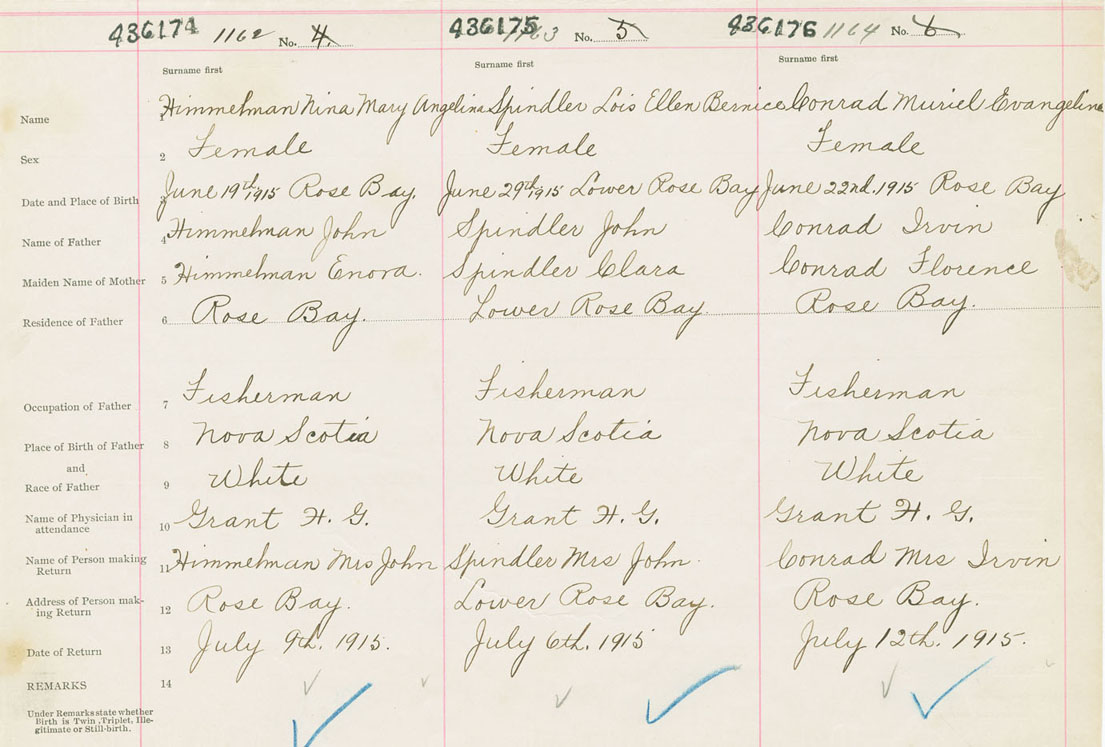 436174 1162 No. 4. 436175 1163 No. 5 436176 1164 No. 6
Surname first Surname first Surname first
Name 1 Himmelman Nina Mary Angelina Spindler Lois Ellen Bernice Conrad Muriel Evangeline
Sex 2 Female Female Female
Date and Place of Birth 3 June 19th 1915 Rose Bay. June 29th 1915 Lower Rose Bay June 22nd. 1915 Rose Bay
Name of Father 4 Himmelman John Spindler John Conrad Irvin
Maiden Name of Mother 5 Himmelman Enora. Spindler Clara Conrad Florence
Residence of Father 6 Rose Bay. Lower Rose Bay. Rose Bay.
Occupation of Father 7 Fisherman Fisherman Fisherman
Place of Birth of Father 8 Nova Scotia Nova Scotia Nova Scotia
and
Race of Father 9 White White White
Name of Physician in
attendance 10 Grant H. G. Grant H. G. Grant H. G.
Name of Person making
Return 11 Himmelman Mrs John Spindler Mrs John. Conrad Mrs Irvin
Address of Person mak-
ing Return 12 Rose Bay. Lower Rose Bay. Rose Bay.
Date of Return 13 July 9th. 1915. July 6th. 1915 July 12th. 1915.
REMARKS 14
Under Remarks state whether
Birth is Twin, Triplet, Ille-
gitimate or Still-birth.